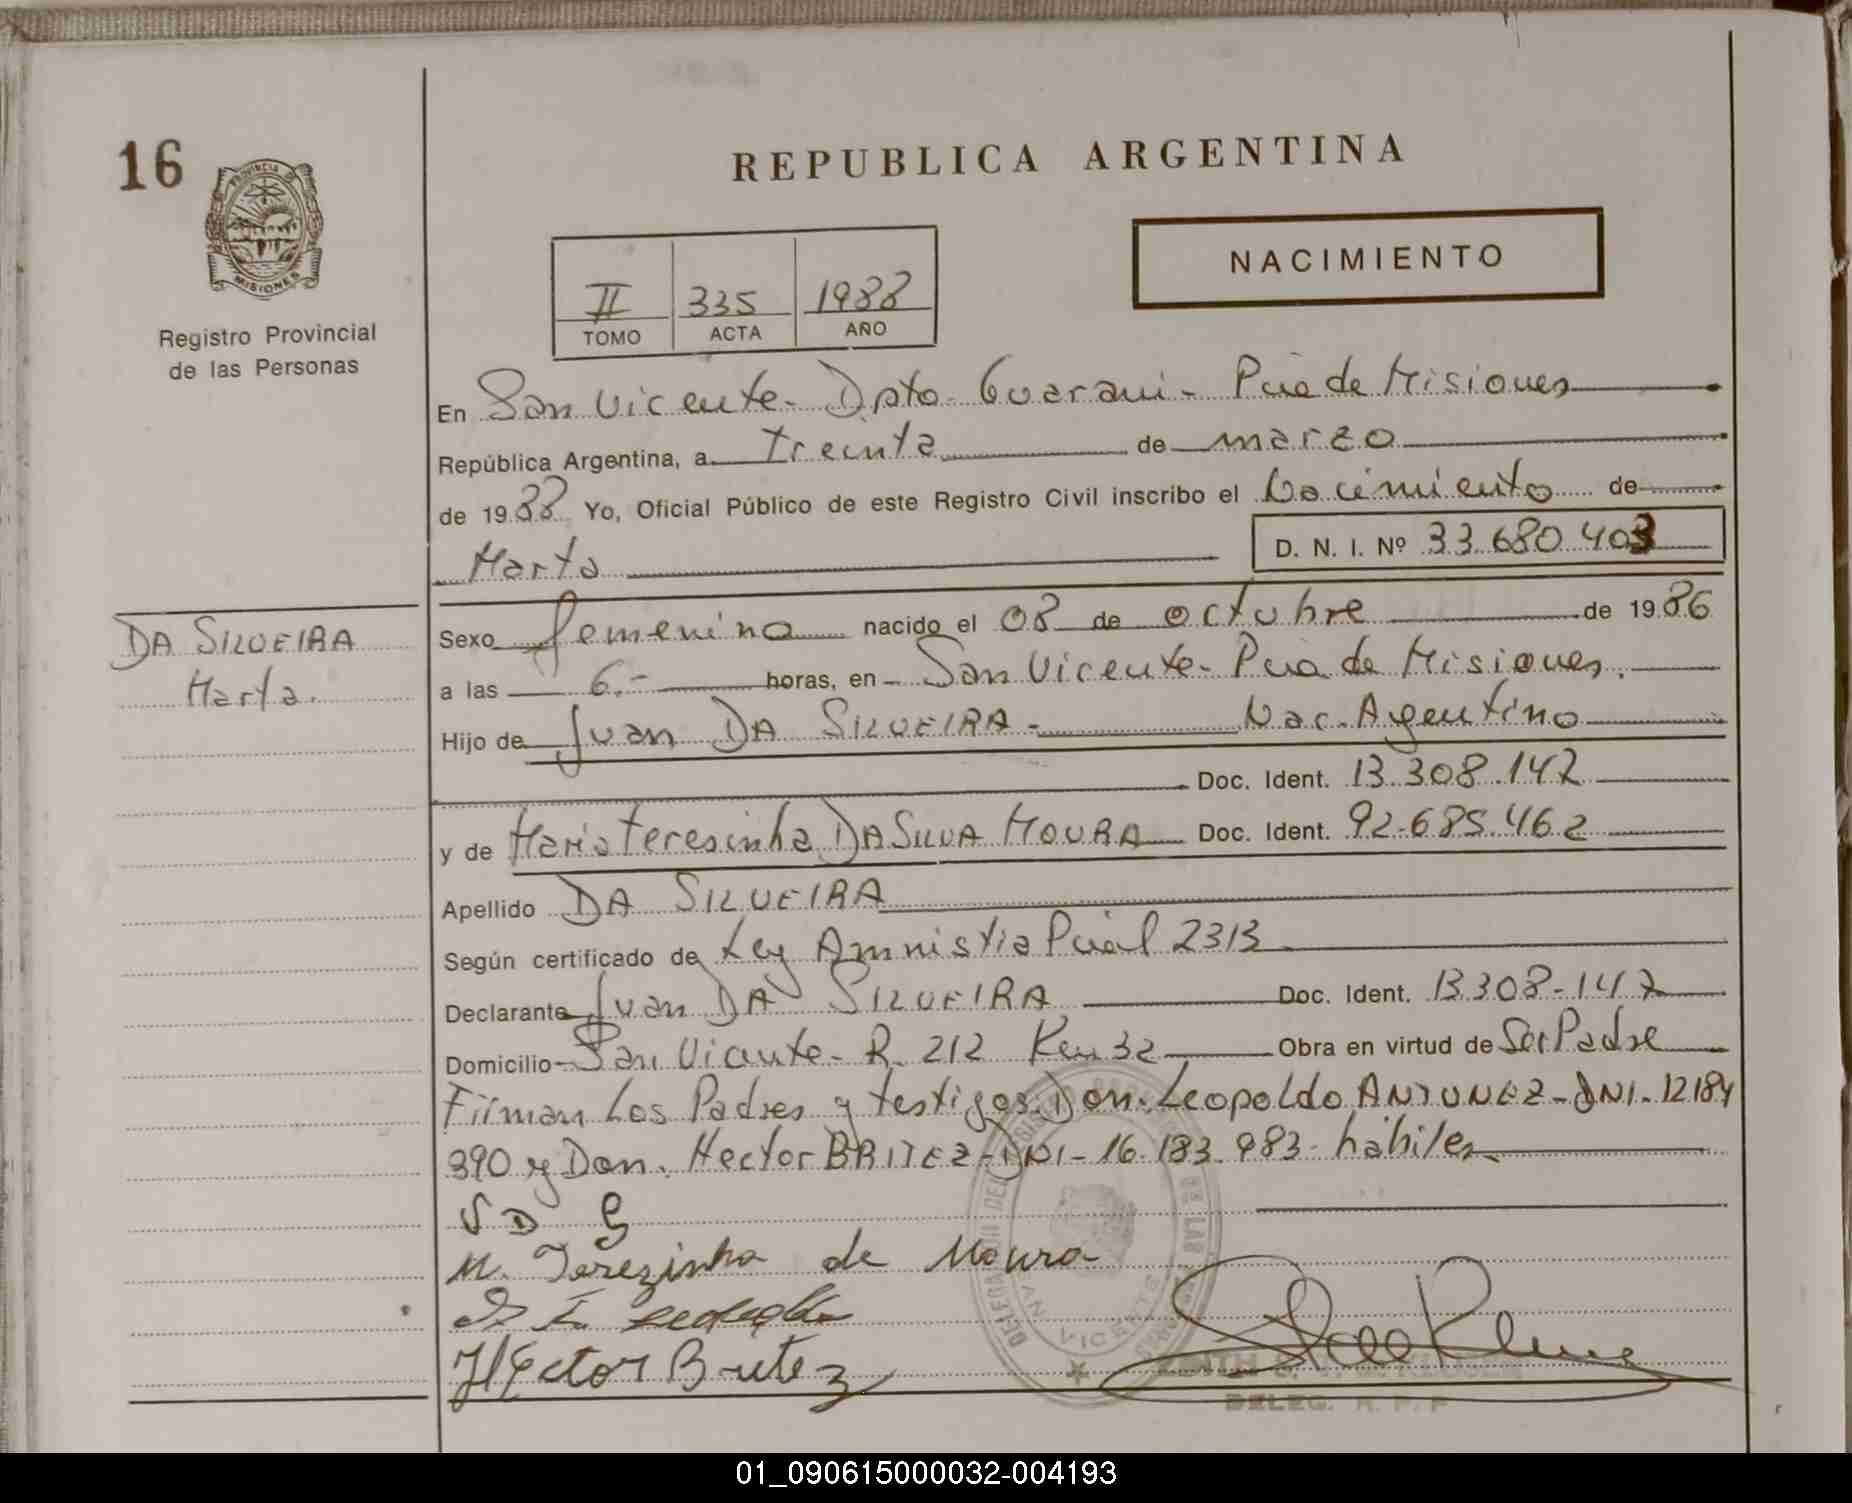 16
PROVINCIA DE
MISIONES
Registro Provincial
de las Personas
REPUBLICA ARGENTINA
NACIMIENTO
II 335 1988
TOMO ACTA AÑO
En San Vicente - Dpto. Guarani - Pcia de Misiones
República Argentina, a treinta de marzo
de 1988 Yo, Oficial Público de este Registro Civil inscribo el Nacimiento de
Marta D. N. I. Nº 33.680.403
DA SILVEIRA
Marta.
Sexo femenino nacido el 08 de octubre de 1986
a las 6.- horas, en San Vicente - Pcia de Misiones.
Hijo de Juan DA SILVEIRA - Nac. Argentino
Doc. Ident. 13.308.147
y de Maria Teresinha DA SILVA MOURA Doc. Ident. 92.685.462
Apellido DA SILVEIRA
Según certificado de Ley Amnistia Pcial 2313
Declarante Juan DA SILVEIRA Doc. Ident. 13.308.147
Domicilio San Vicente - R. 212 Km 32 Obra en virtud de Ser Padre
Firman Los Padres y testigos Don. Leopoldo ANTUNEZ - DNI - 12184
390 y Don. Hector BRITEZ - DNI - 16.183.983 - hábiles
M. Terezinha de Moura
Héctor Britez
SAN VICENTE
DELEG. R. P. P
01_090615000032-004193